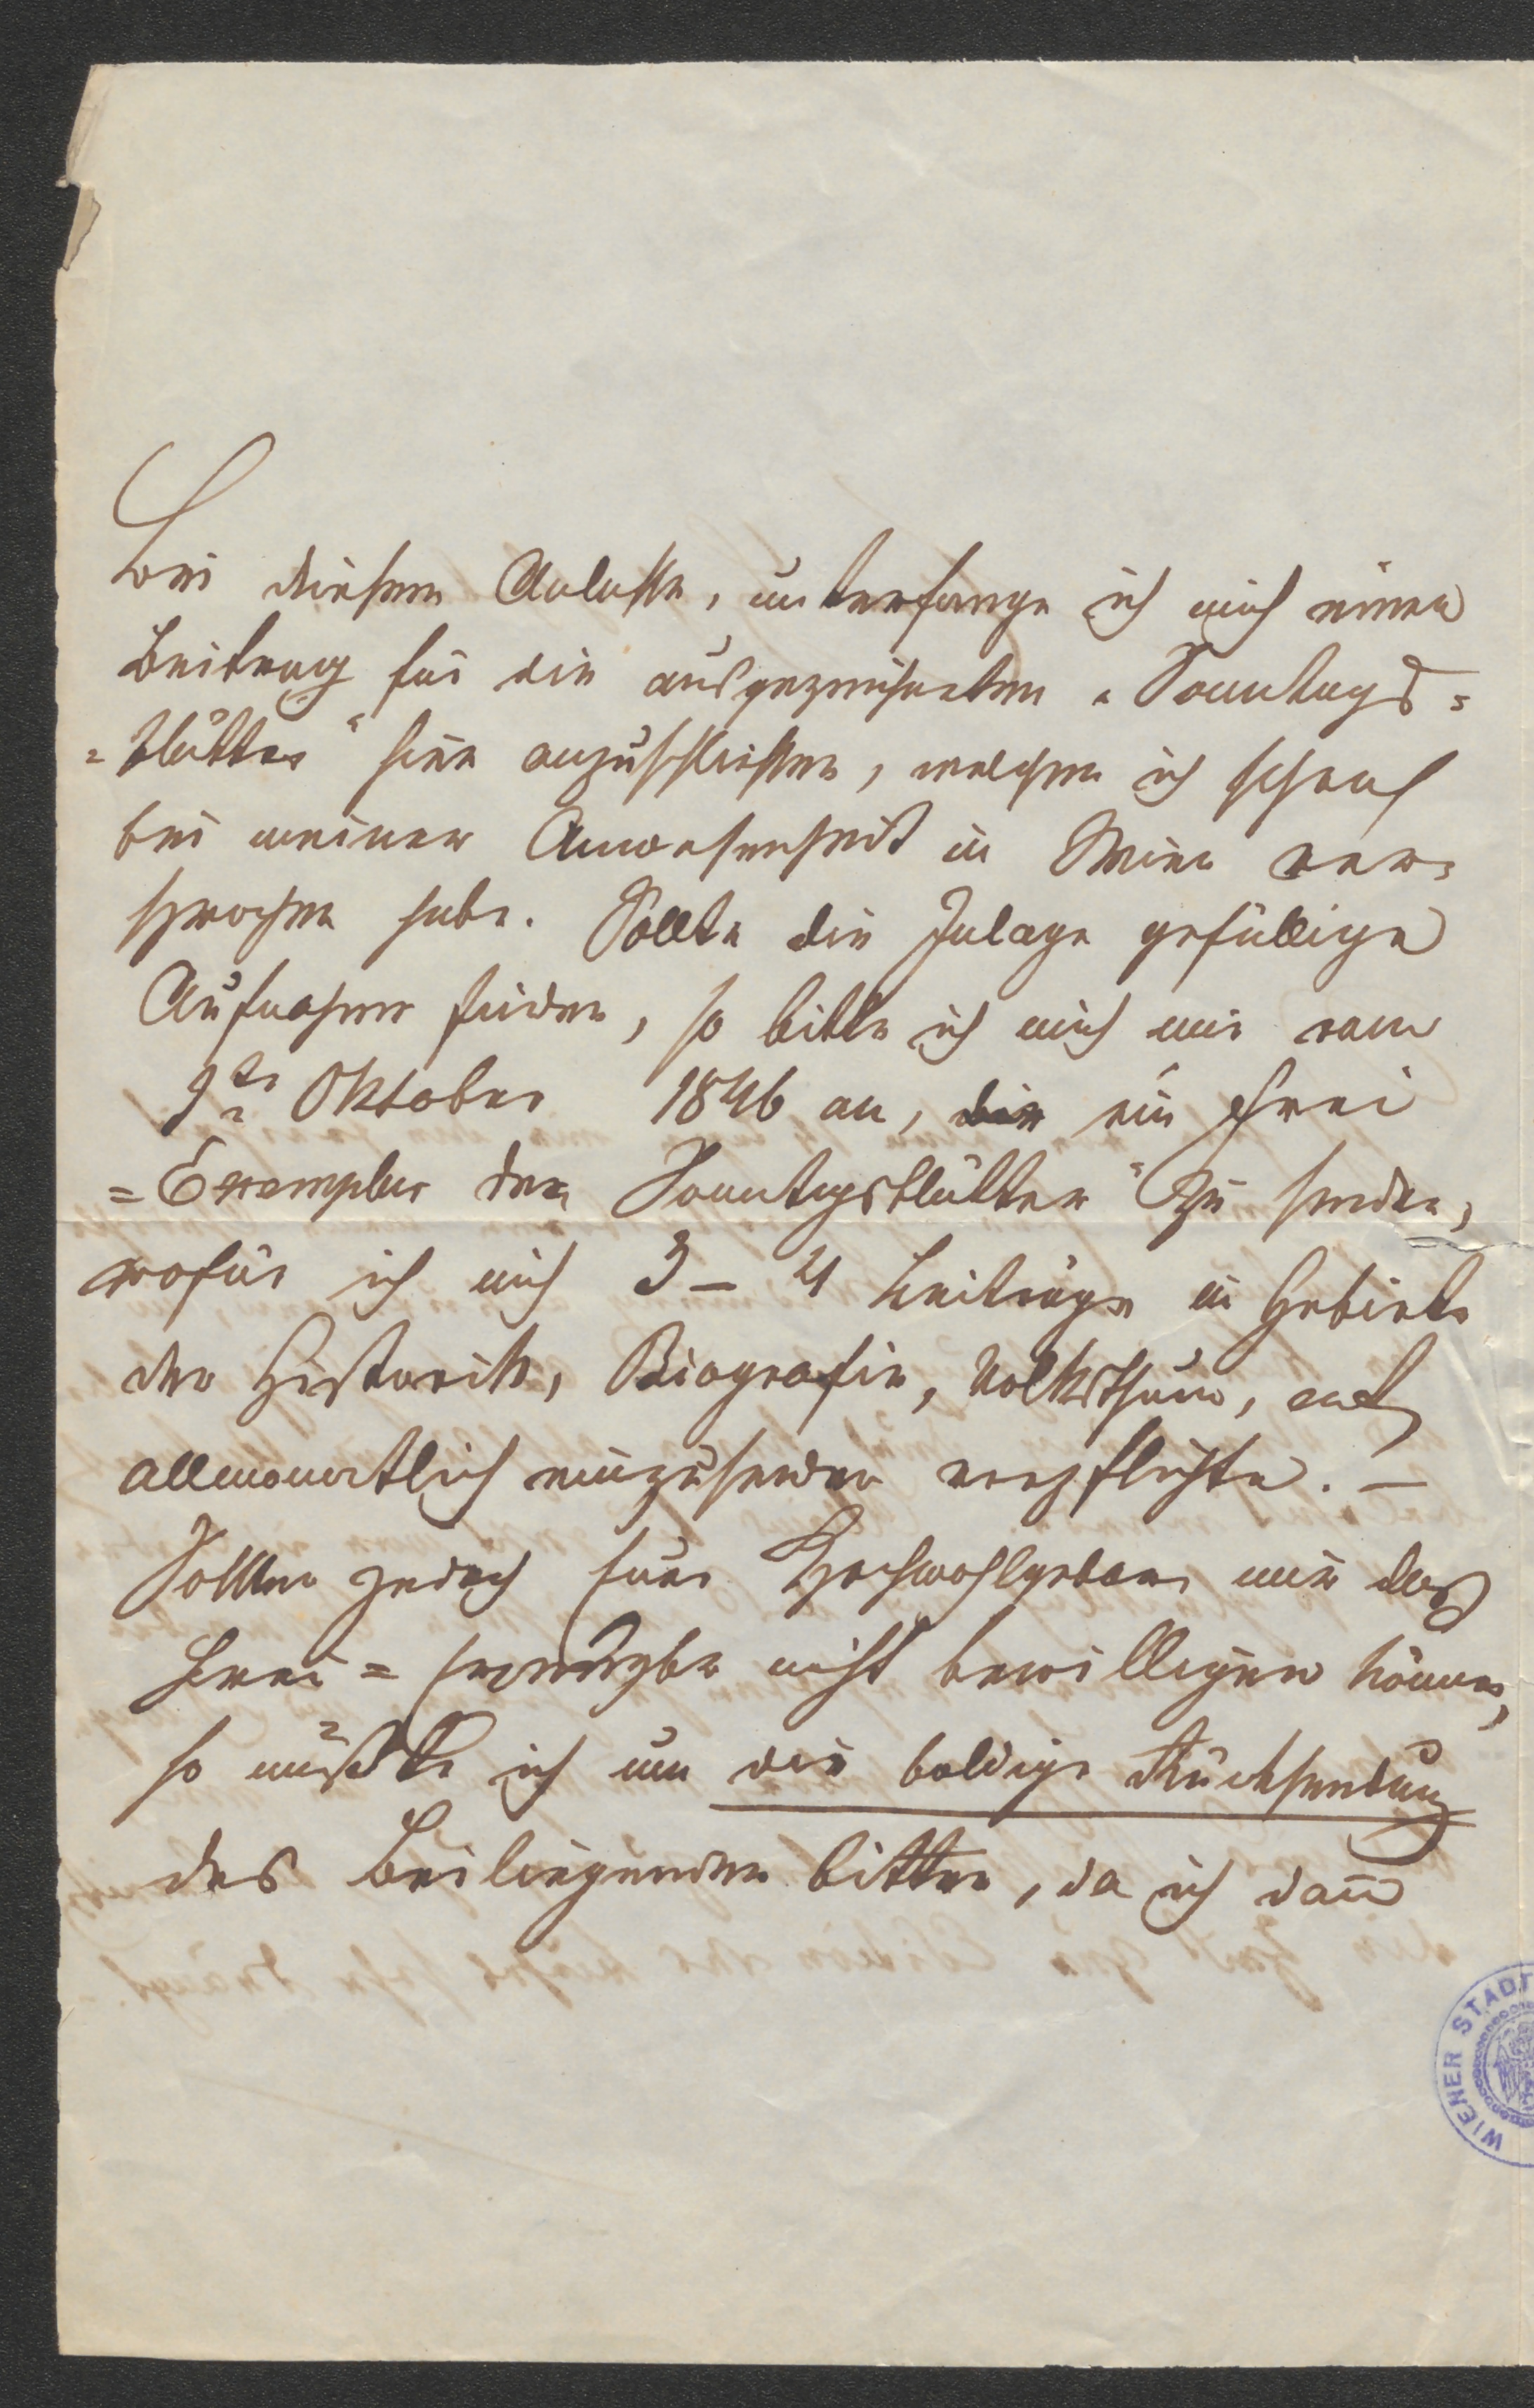 Bei diesem Anlasse, unterfange ich mich einen
Beitrag für die ausgezeichneten „Sonntags=
=blätter“ hier anzuschliessen, welchen ich schon
bei meiner Anwesenheit in Wien ver=
sprochen habe. Sollte die Inlage gefällige
Aufnahme finden, so bitte ich mich mir vom
1te Oktober 1846 an, die ein Frei
=Exemplar der Sonntagsblätter“ zu senden,
wofür ich mich 3 – 4 Beiträge im Gebiete
der Historik, Biografie, Volksthum,
allmonatlich einzusenden verpflichte. –
Sollten jedoch Euer Hochwohlgeboren mir das
Frei= nicht bewilligen können,
so müßte ich um die baldige Rücksendung
des Beiliegenden bitten, da ich dann
WIENER STADT